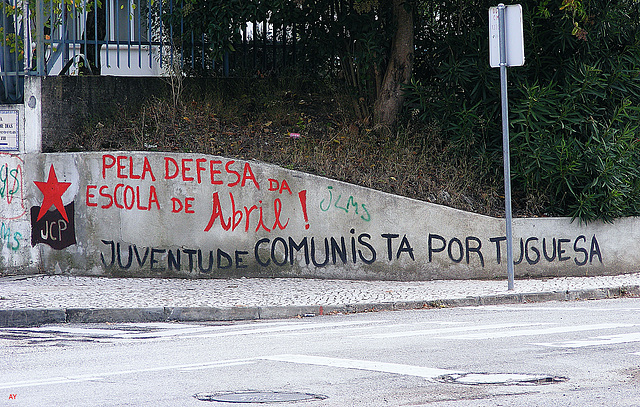 PELA DEFESA DA
ESCOLA DE Abril!
JLMS
JCP
JUVENTUDE COMUNISTA PORTUGUESA
AY